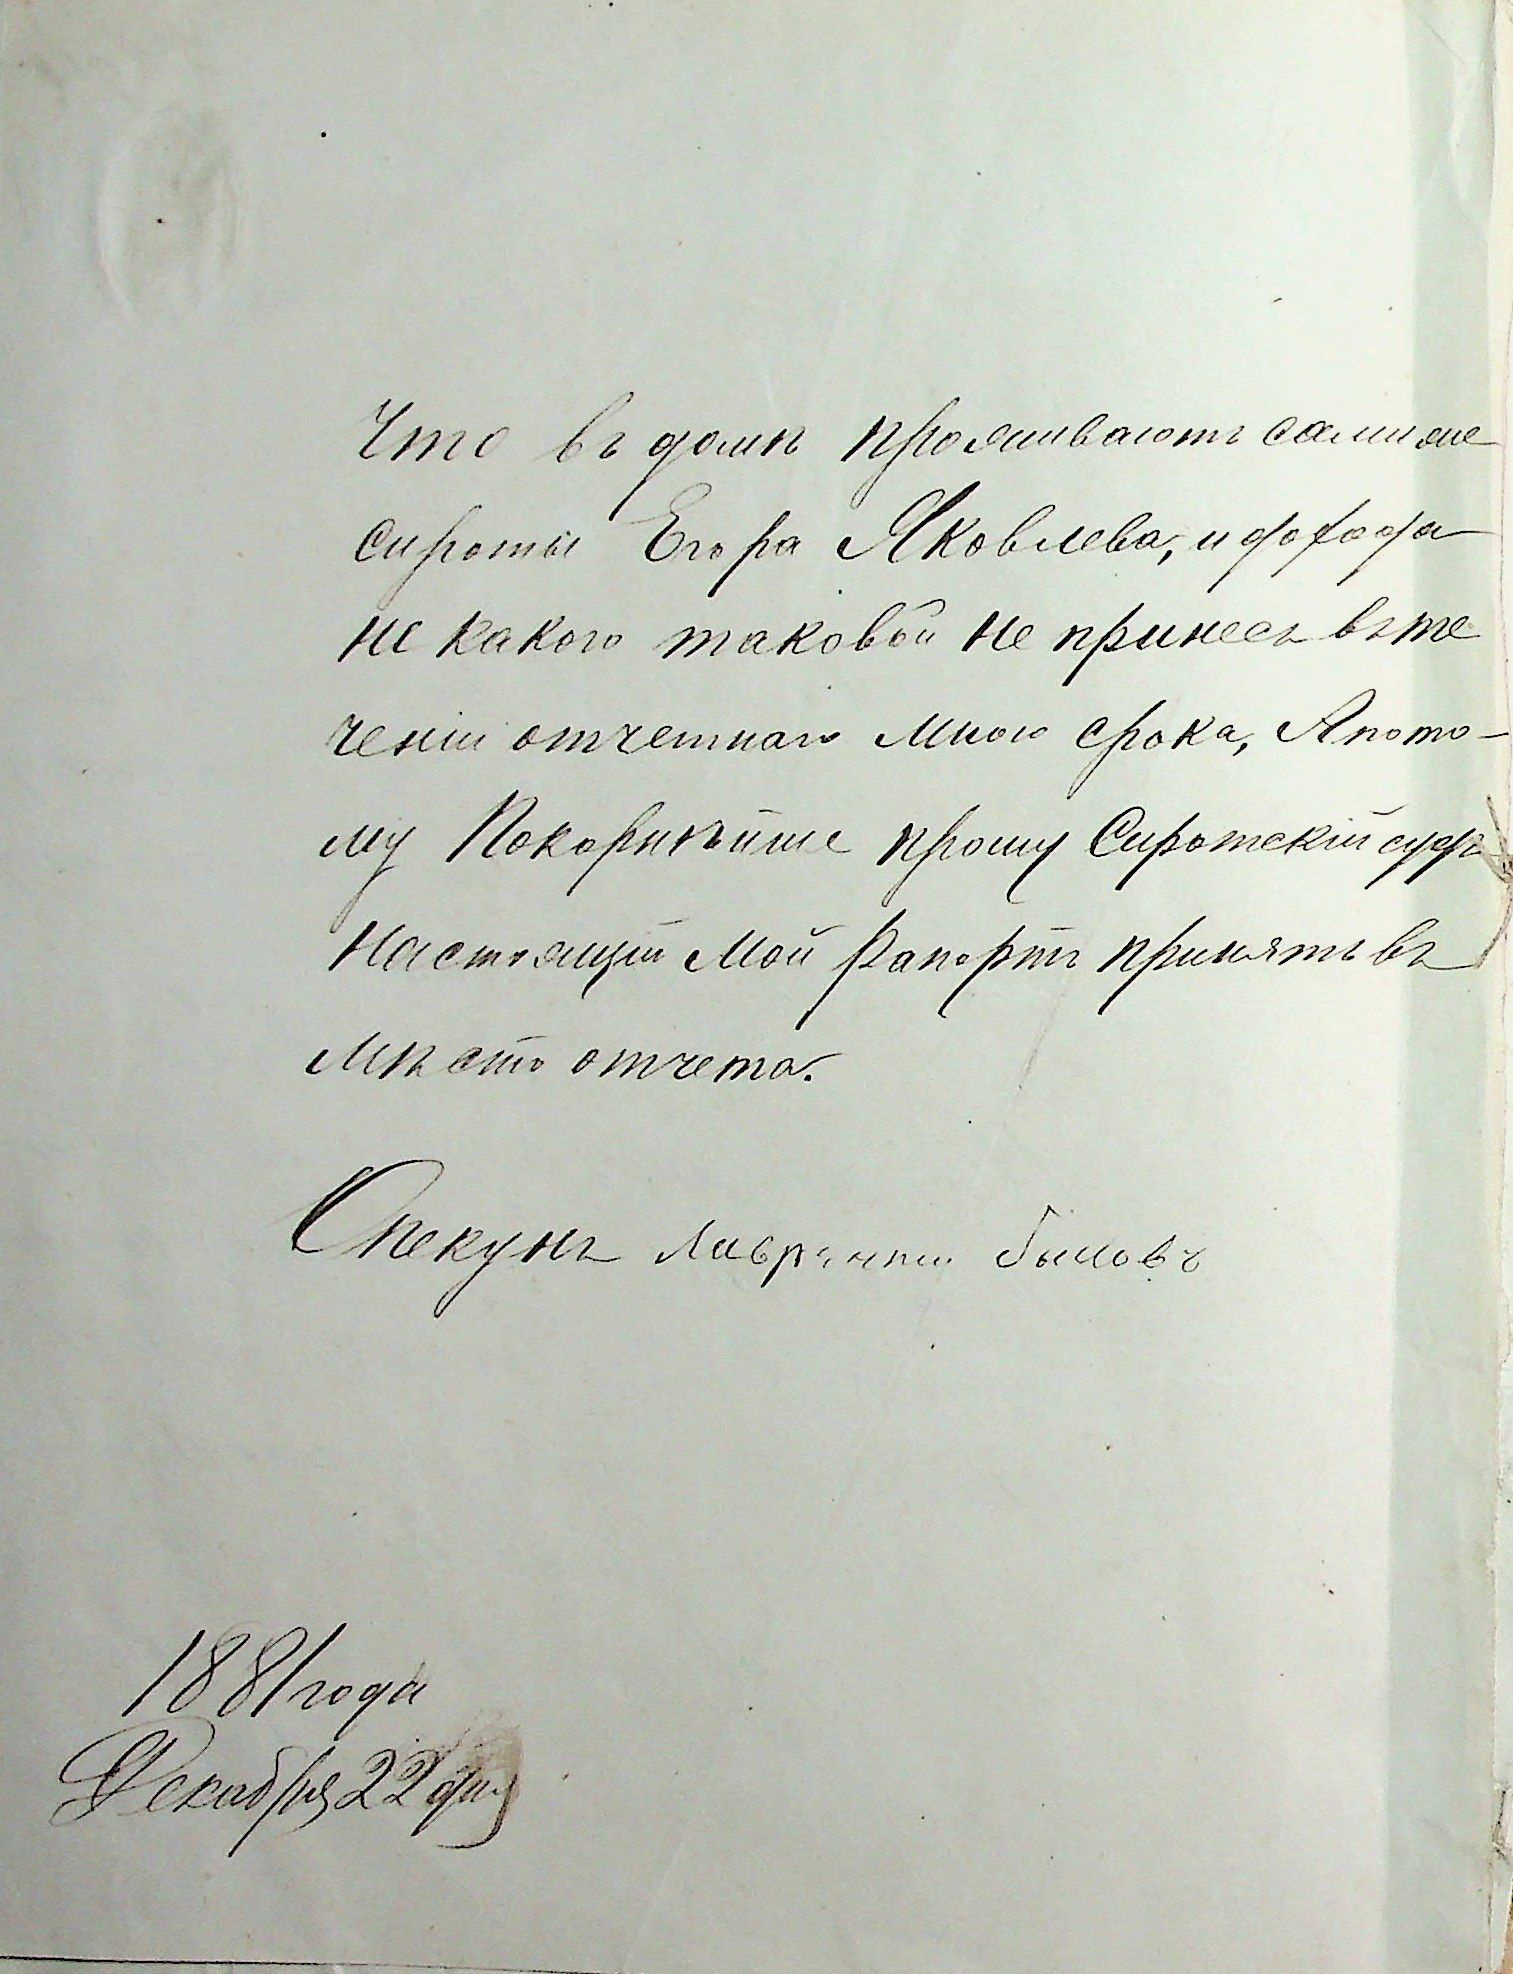 Что въ домѣ проживаютъ сами же
сироты Егора Яковлева, и дохода
не какого таковой не принесъ въ те
ченіи отчетнаго мною срока, А пото-
му Покорнѣйше прошу Сиротскій судъ
настоящій мой Рапортъ принять въ
мѣсто отчета.
Опекунъ Лаврентий Быковъ
1881 года
Декабря 22 дня